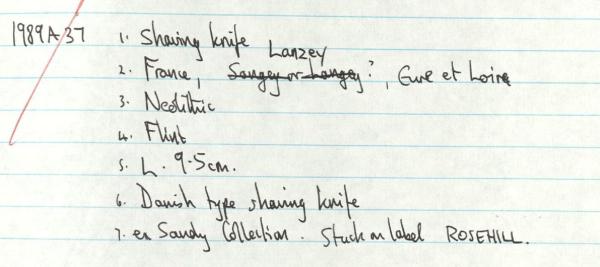 1989A37 1. Shaving knife
Lanzey
2. France, Sangey or Langey?, Eure et Loire
3. Neolithic
4. Flint
5. L. 9.5cm.
6. Danish type shaving knife
7. ex Sandy Collection. Stuck on label ROSEHILL.